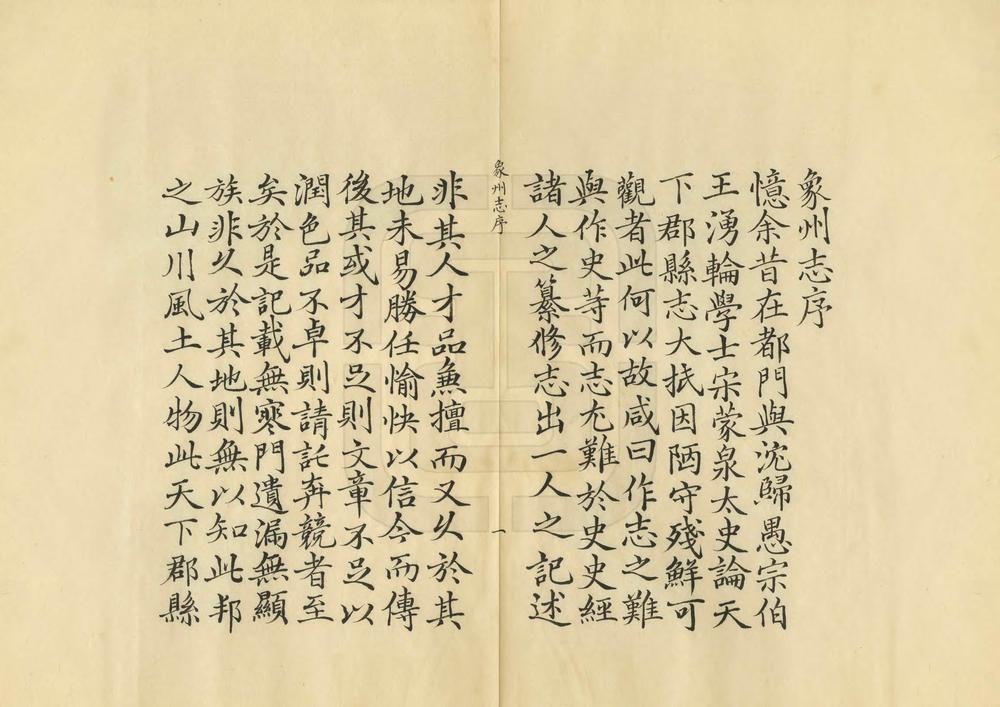 象州志序
憶余昔在都門與沈歸愚宗伯
王湧輪學士宋蒙泉太史論天
下郡縣志大抵因陋守殘鮮可
觀者此何以故咸曰作志之難
與作史等而志尤難於史史經
諸人之纂修志出一人之記述
象州志序
一
非其人才品兼擅而又久於其
地未易勝任愉快以信今而傳
後其或才不足則文章不足以
潤色品不卓則請託奔競者至
矣於是記載無寒門遺漏無顯
族非久於其地則無以知此邦
之山川風土人物此天下郡縣